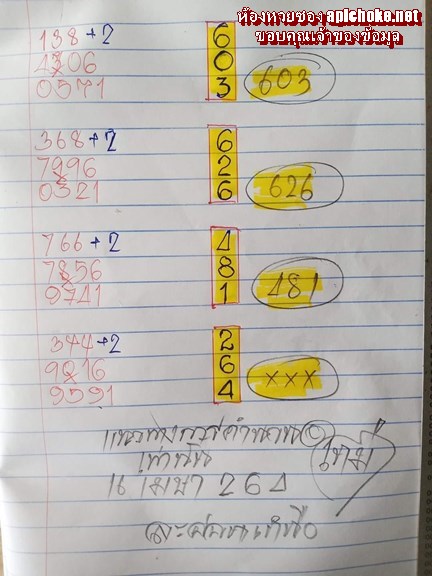 ห้องหวยซอง aplchoke.net
ขอบคุณเจ้าของข้อมูล
138+2
4306
0571
6
0
3
603
368+2
7996
0321
6
2
6
626
766+2
7856
9741
4
8
1
481
344+2
9016
9591
2
6
4
xxx
แนวทางการคำนวน
เท่านั้น
16 เมษา 264